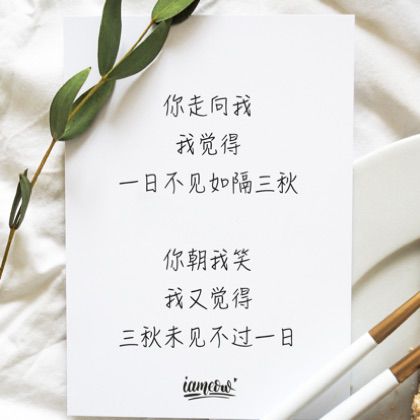 你走向我
我觉得
一日不见如隔三秋
你朝我笑
我又觉得
三秋未见不过一日
iameow